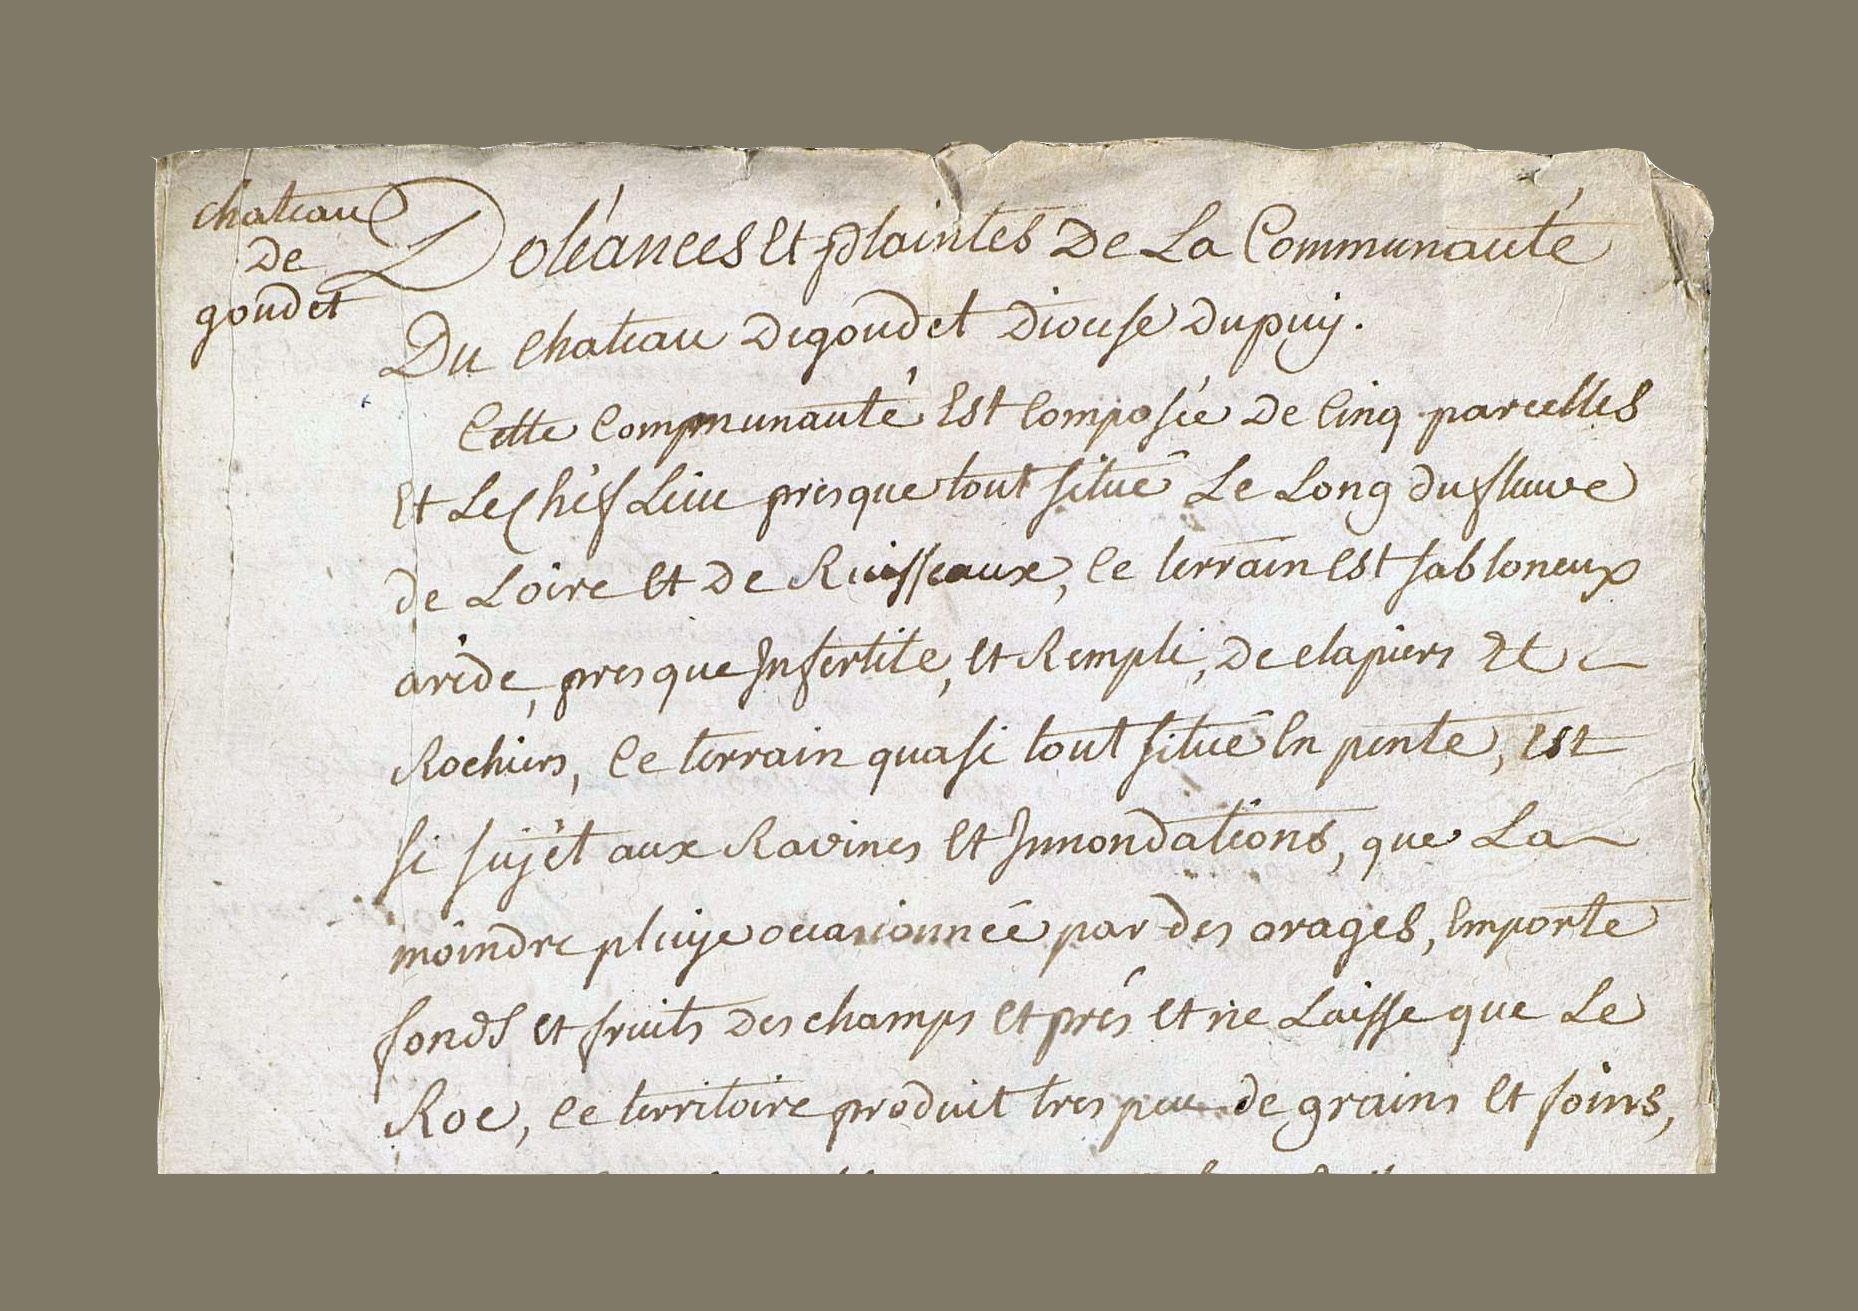 chateau
De
goudet
Doléances et plaintes De La Communauté
Du chateau Degoudet Diocese Dupuij.
Cette Communauté Est Composée De Cinq parcelles
et Le Chéf Lieu presque tout situé Le Long du fleuve
de Loire et De Ruisseaux, Ce terrain est sabloneux
aride, presque Infertile, et Rempli, De clapiers et
Rochiers, Ce terrain quasi tout situé En pente, est
si sujét aux Ravines et Innondations, que La
moindre pluije occasionnée par des orages, Emporte
fonds et fruits Des champs et prés et ne Laisse que Le
Roc, Ce territoire produit tres peu de grains et foins,